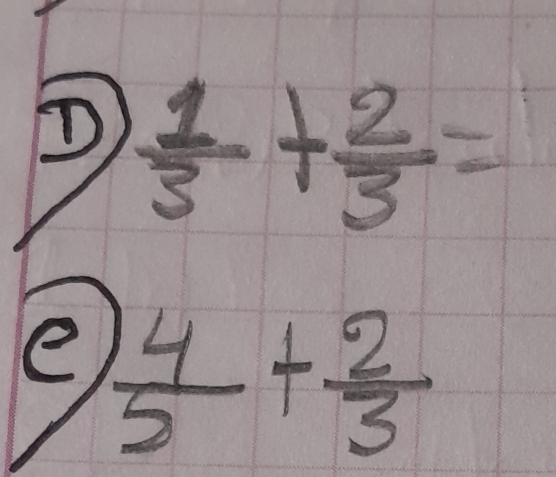 D) 1/3 + 2/3 =
e) 4/5 + 2/3